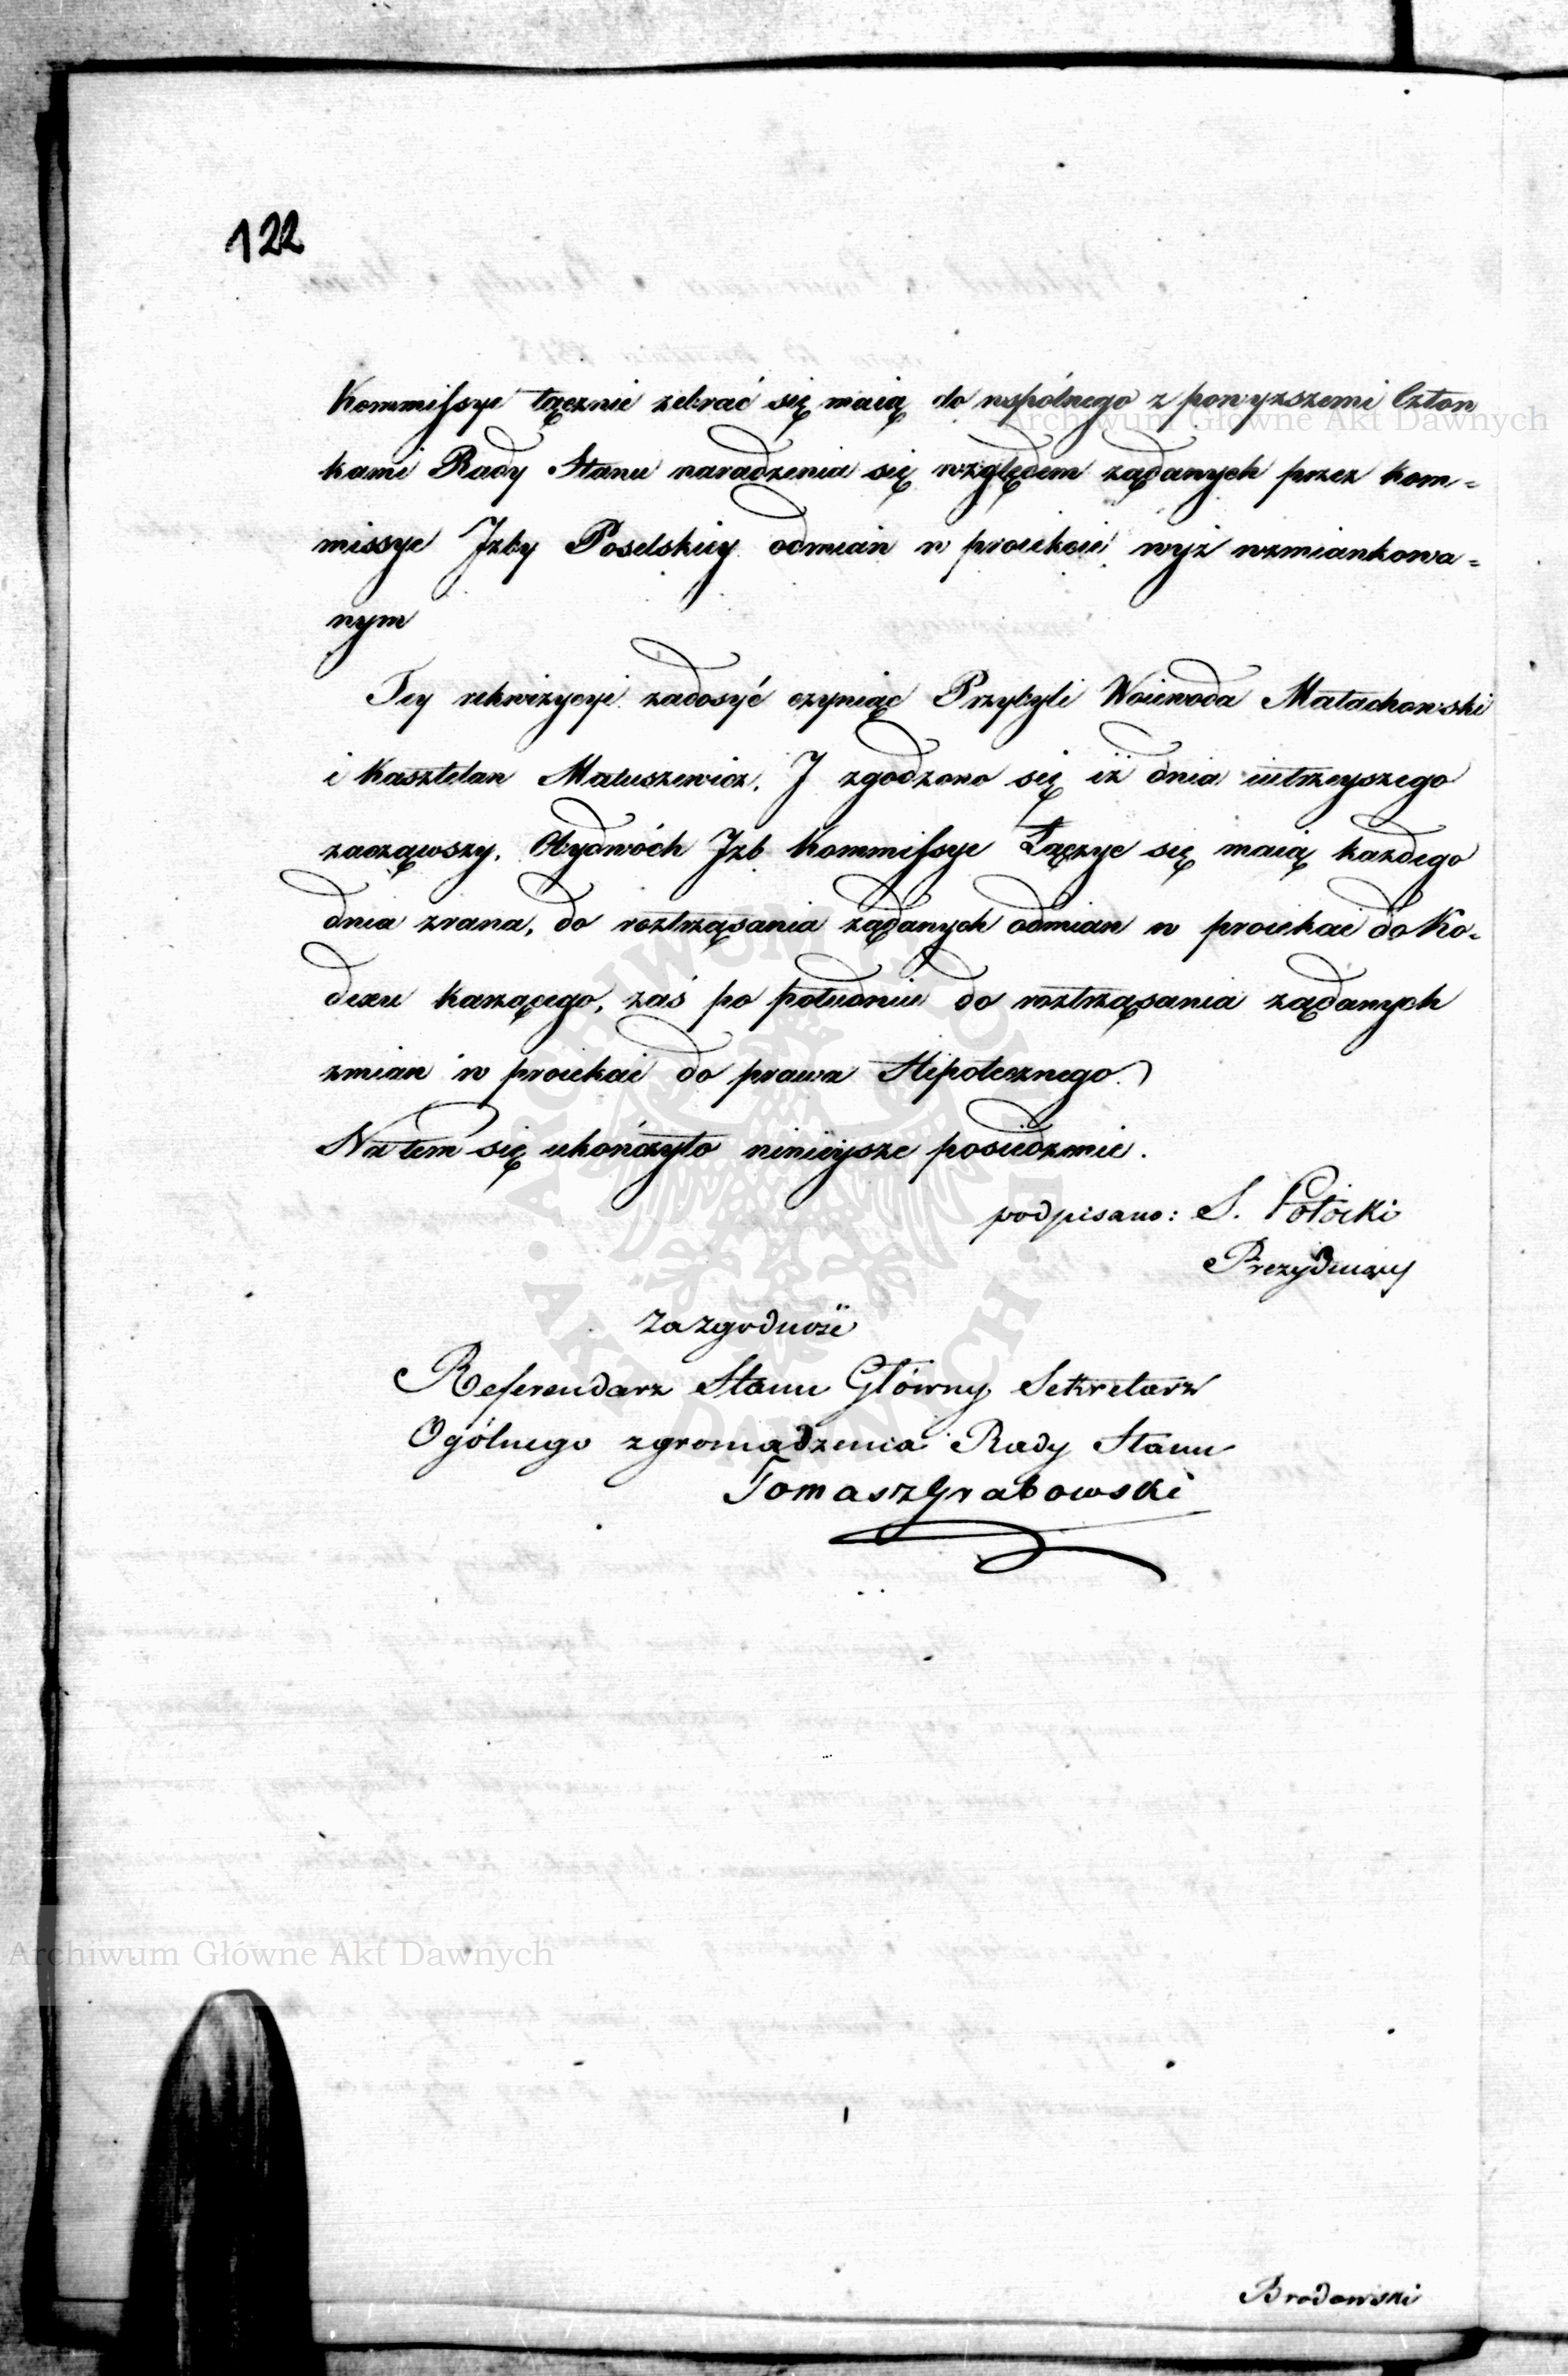 122
Kommissye łącznie zebrać się maią do wspólnego z powyższemi Człon
kami Rady Stanu naradzenia się względem żądanych przez Kom=
missye Jzby Poselskiey odmian w proiekcie wyż wzmiankowa=
nym
Tey rekwizycyi zadosyć czyniąc Przybyli Woiewoda Małachowski
i Kasztelan Matuszewicz. J zgodzono się iż dnia iutrzeyszego
zacząwszy, Obydwóch Jzb Kommissye Łączyc się maią każdego
dnia zrana, do roztrząsania żądanych odmian w proiekcie do Ko=
dexu karzącego, zaś po południu do roztrząsania żądanych
zmian w proiekcie do prawa Hipotecznego.
Na tem się ukończyło ninieysze posiedzenie.
podpisano: S. Potocki
Prezyduiący
Za zgodność
Referendarz Stanu Główny Sekretarz
Ogólnego zgromadzenia Rady Stanu
Tomasz Grabowski
Brodowski
Archiwum Główne Akt Dawnych
Archiwum Główne Akt Dawnych
ARCHIWUM GŁÓWNE AKT DAWNYCH